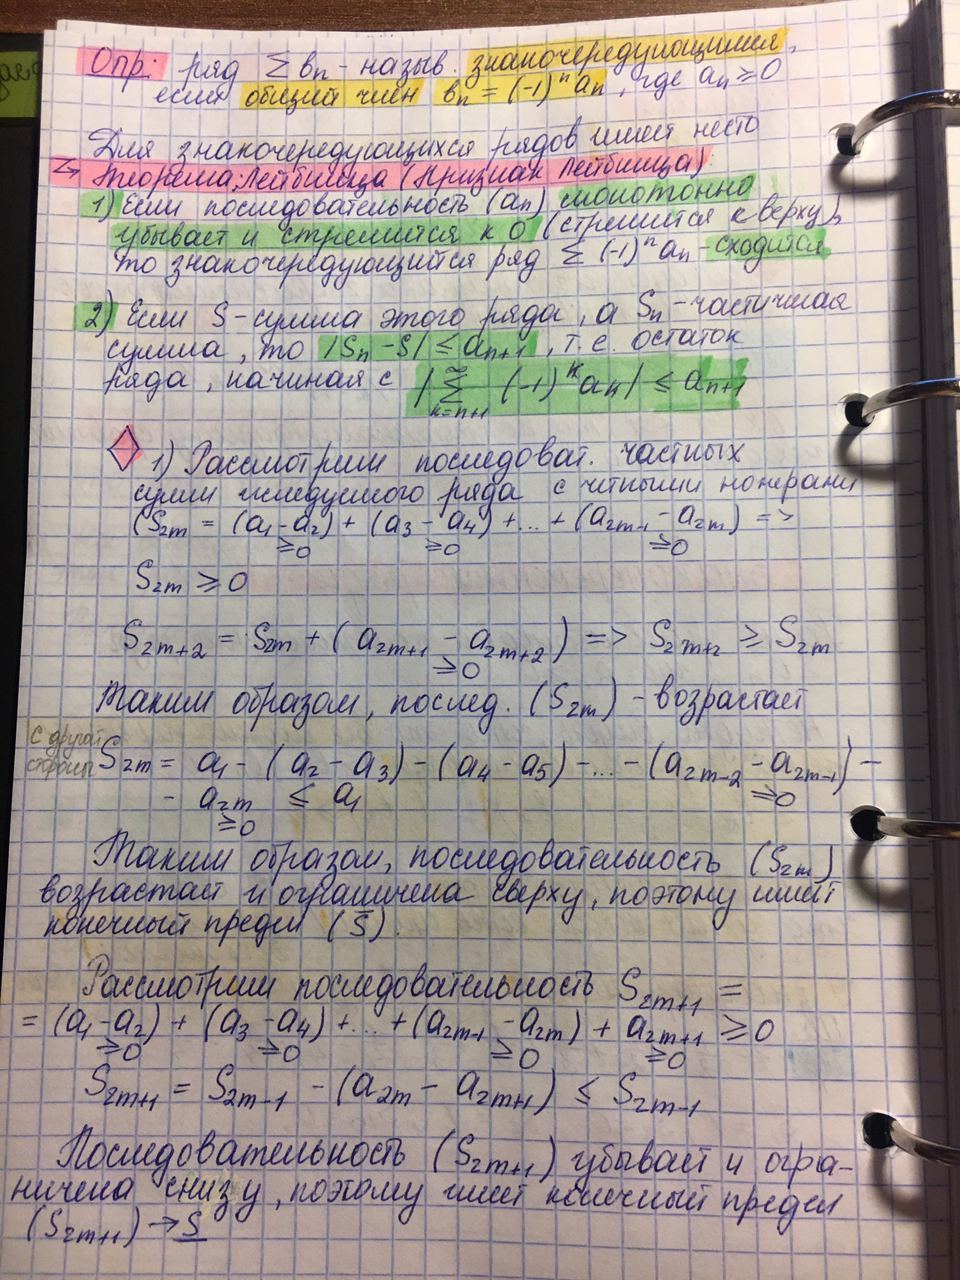 Опр: ряд ∑ bₙ - назыв. знакочередующимся,
если общий член bₙ = (-1)ⁿ aₙ, где aₙ ≥ 0
Для знакочередующихся рядов имеет место
Теорема: Лейбница (признак Лейбница):
1) Если последовательность (aₙ) монотонно
убывает и стремится к 0 (стремится к верху),
то знакочередующийся ряд ∑ (-1)ⁿ aₙ - сходится
2) Если S - сумма этого ряда, а Sₙ - частичная
сумма, то |Sₙ - S| ≤ aₙ₊₁, т.е. остаток
ряда, начиная с | ∑_{k=n+1}^{∞} (-1)ᵏ aₖ | ≤ aₙ₊₁
1) Рассмотрим последоват. частных
сумм исследуемого ряда с чётными номерами
(S₂ₘ = (a₁ - a₂) + (a₃ - a₄) + ... + (a₂ₘ₋₁ - a₂ₘ) =>
≥0 ≥0 ≥0
S₂ₘ ≥ 0
S₂ₘ₊₂ = S₂ₘ + (a₂ₘ₊₁ - a₂ₘ₊₂) => S₂ₘ₊₂ ≥ S₂ₘ
≥0
Таким образом, послед. (S₂ₘ) - возрастает
с другой
стороны S₂ₘ = a₁ - (a₂ - a₃) - (a₄ - a₅) - ... - (a₂ₘ₋₂ - a₂ₘ₋₁) -
≥0
- a₂ₘ ≤ a₁
≥0
Таким образом, последовательность (S₂ₘ)
возрастает и ограничена сверху, поэтому имеет
конечный предел (S̄).
Рассмотрим последовательность S₂ₘ₊₁ =
= (a₁ - a₂) + (a₃ - a₄) + ... + (a₂ₘ₋₁ - a₂ₘ) + a₂ₘ₊₁ ≥ 0
≥0 ≥0 ≥0 ≥0
S₂ₘ₊₁ = S₂ₘ₋₁ - (a₂ₘ - a₂ₘ₊₁) ≤ S₂ₘ₋₁
Последовательность (S₂ₘ₊₁) убывает и огра-
ничена снизу, поэтому имеет конечный предел
(S₂ₘ₊₁) → S̲